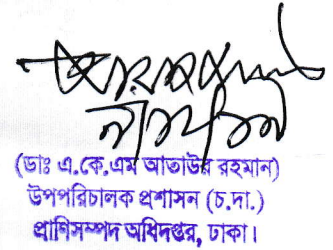 (ডাঃ এ.কে.এম আতাউর রহমান)
উপপরিচালক প্রশাসন (চ.দা.)
প্রাণিসম্পদ অধিদপ্তর, ঢাকা।